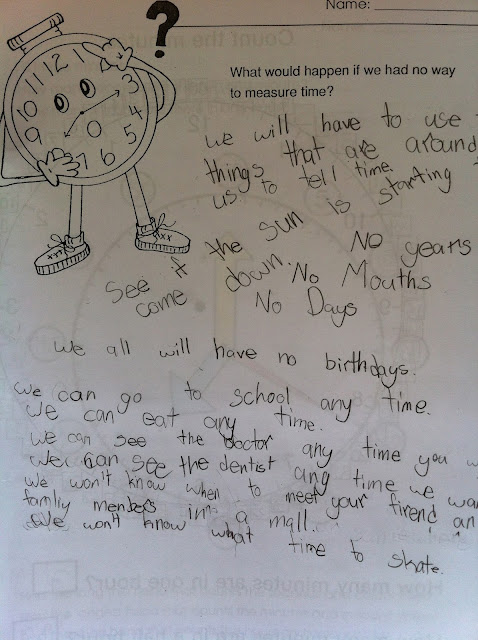 Name:
?
What would happen if we had no way
to measure time?
12
1
2
3
4
5
6
7
9
10
11
we will have to use
things that are around
us to tell time.
See if the sun is starting
come down.
No years
No Mouths
No Days
we all will have no birthdays.
we can go to school any time.
we can eat any time.
we can see the doctor any time you
we can see the dentist any time we wa
we won't know when to meet your firend an
famliy menbers in a mall.
we won't know what time to skate.
How many minutes are in one hour?
Count the minut